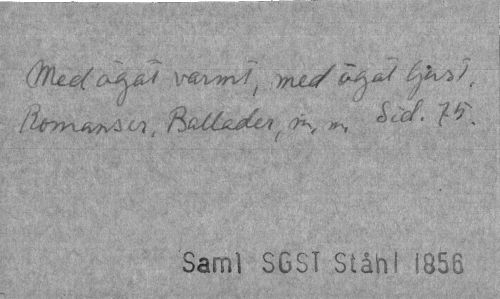 Med ögat varmt, med ögat ljust.
Romanser, Ballader, m. m. Sid. 75.
Saml SGST Ståhl 1856